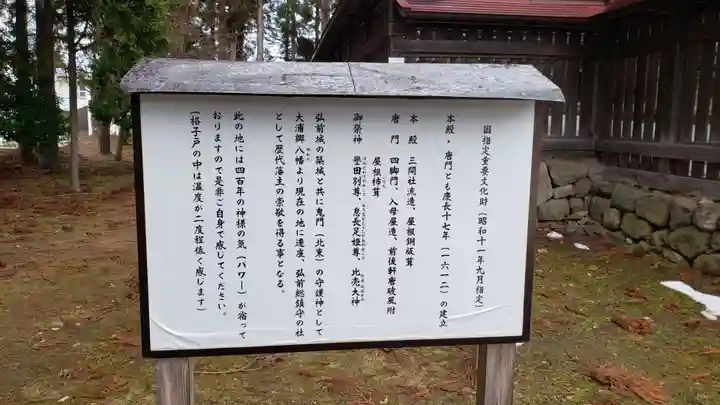 国指定重要文化財(昭和十一年九月指定)
本殿・唐門とも慶長十七年(一六一二)の建立
本殿 三間社流造、屋根銅板葺
唐門 四脚門、入母屋造、前後軒唐破風附
屋根杮葺
御祭神 誉田別尊、息長足姫尊、比売大神
弘前城の築城と共に鬼門(北東)の守護神として
大浦郷八幡より現在の地に遷座、弘前総鎮守の社
として歴代藩主の崇敬を得る事となる。
此の地には四百年の神様の気(パワー)が宿って
おりますので是非ご自身で感じてください。
(格子戸の中は温度が二度程低く感じます)